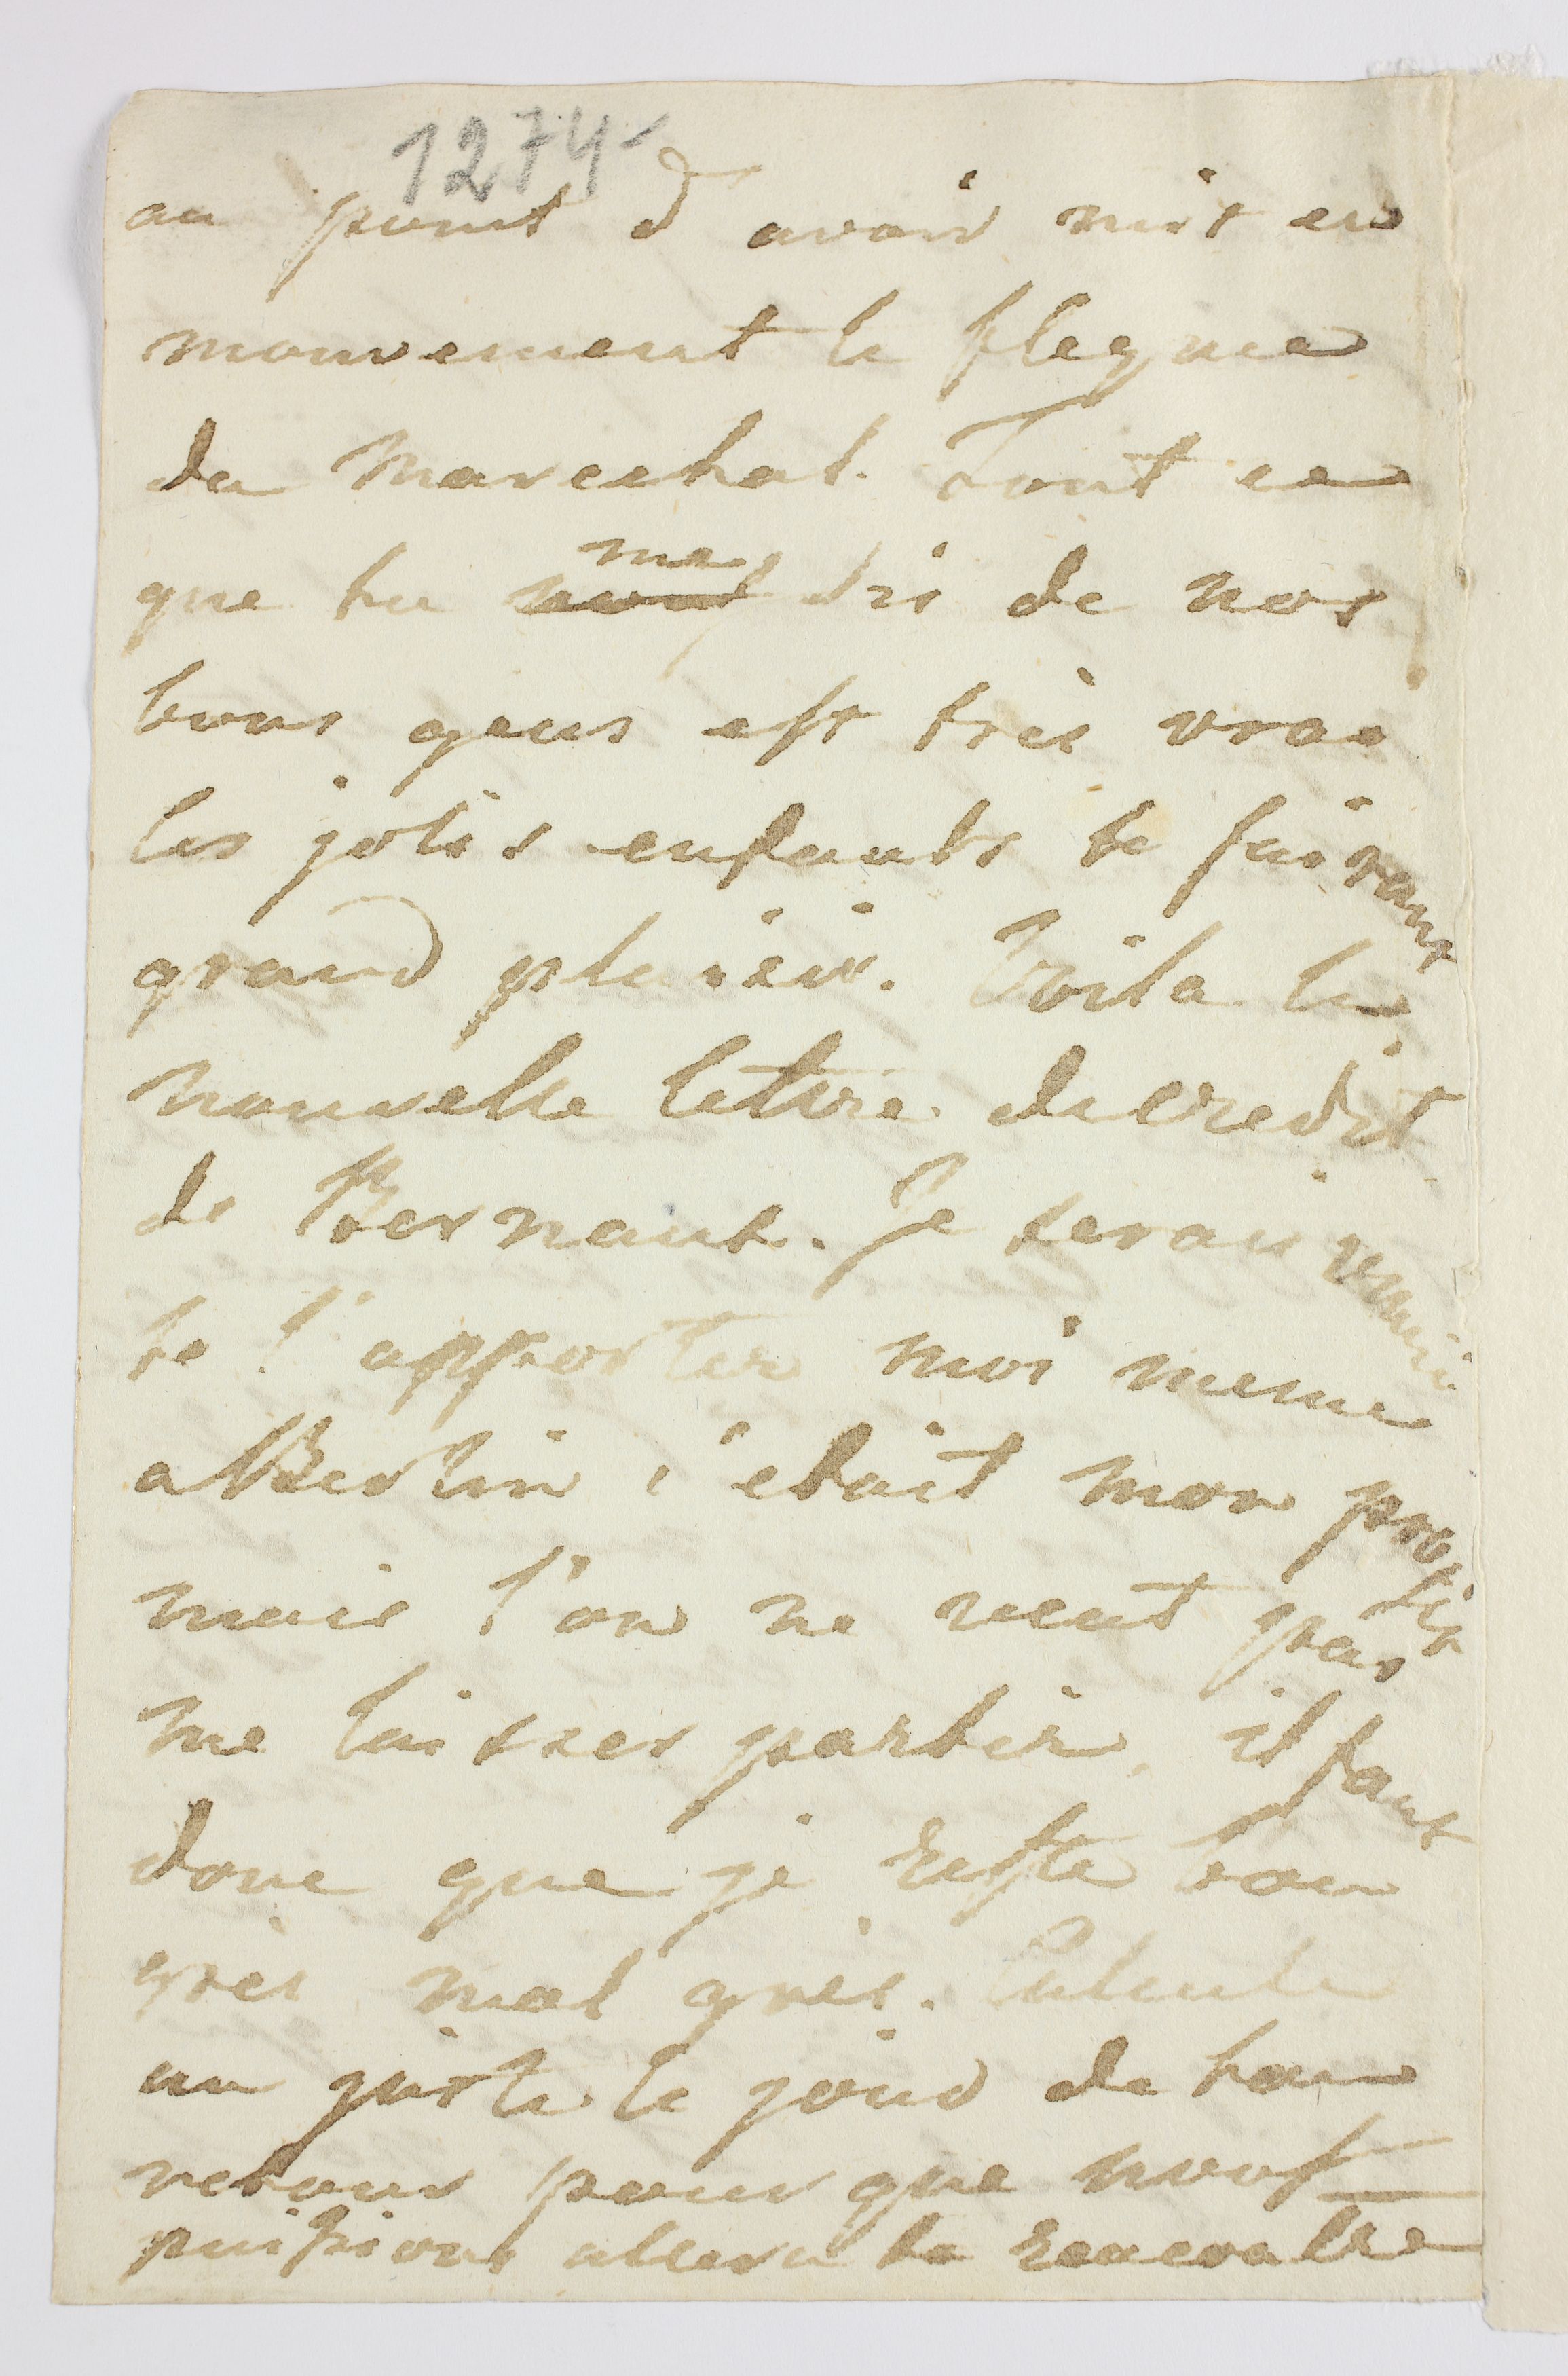 1274
au point d'avoir mis en
mouvement le flegme
du Marechal. Tout ce
que tu me dis de nos
bons gens est tres vrai
les jolies enfants te fairont
grand plaisir. Voila la
nouvelle lettre de credit
de Bernard. Je serais
te l'apporter moi meme
a Berlin c'etait mon projet
mais l'on ne veut pas
me laisser partir, il faut
donc que je reste bon
gres mal gres. Calcule
au juste le jour de ton
retour pour que nous
puissions aller a ta rencontre